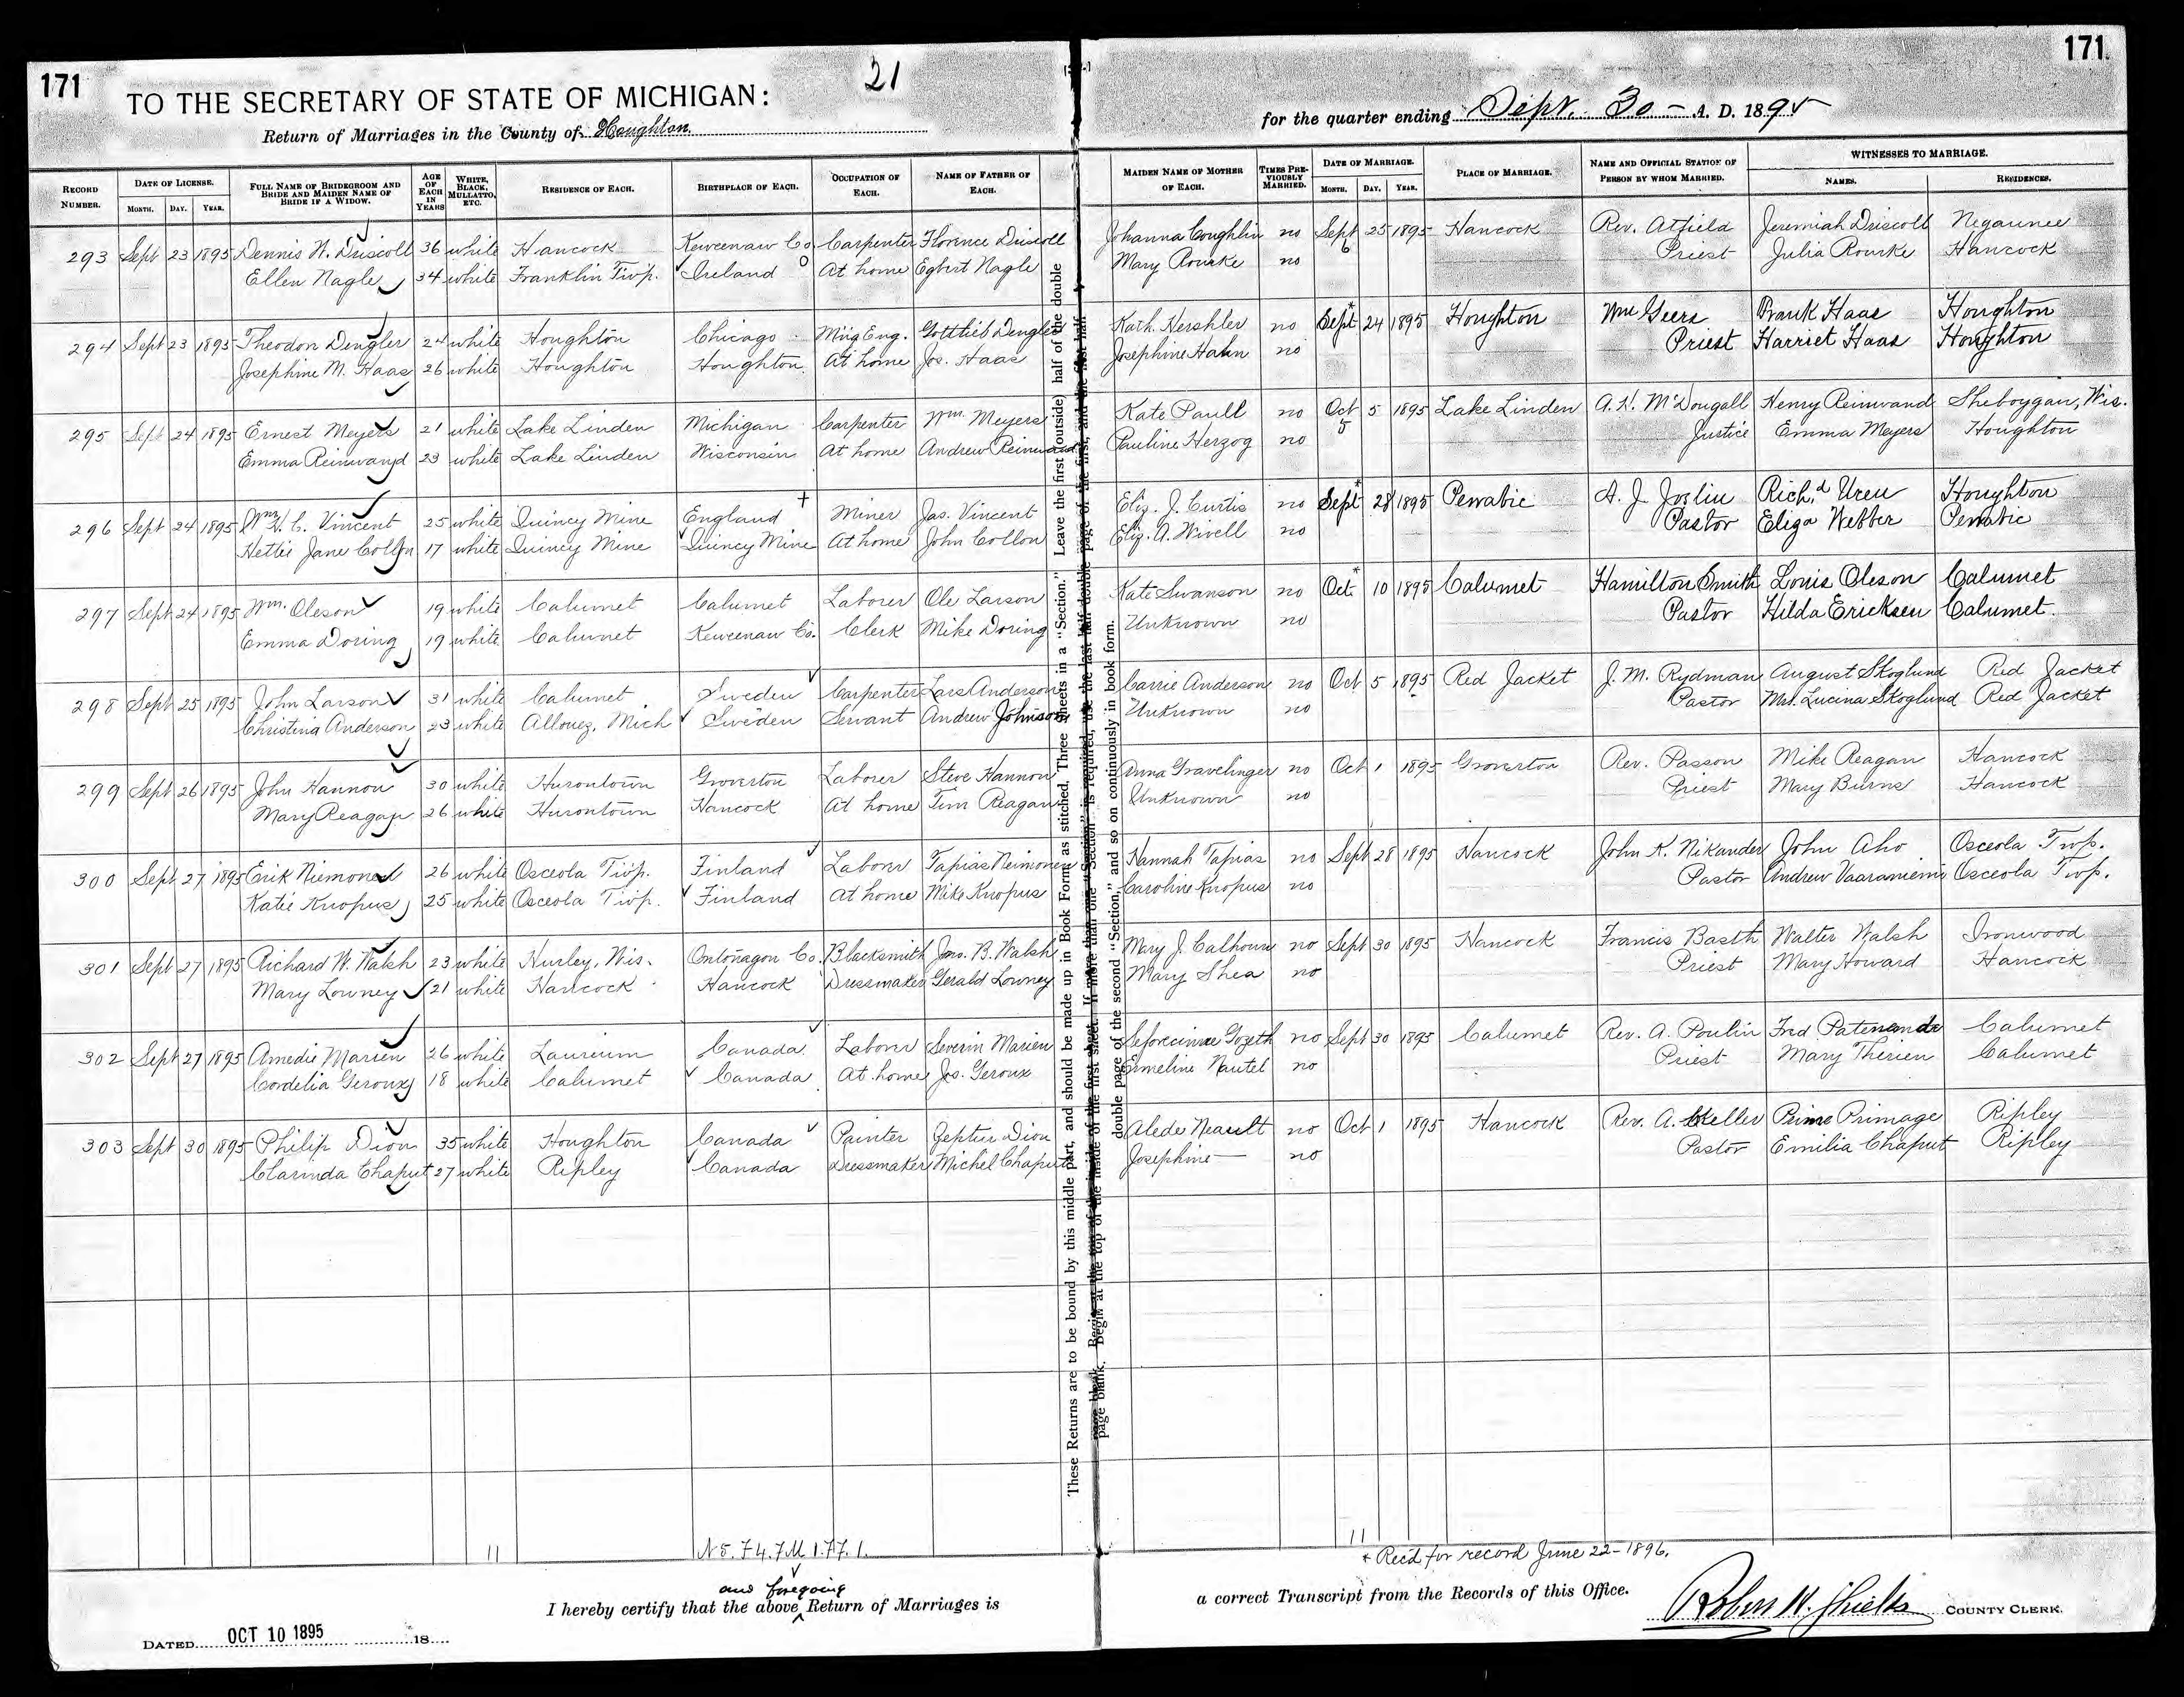 171
171.
21
TO THE SECRETARY OF STATE OF MICHIGAN:
Return of Marriages in the County of Houghton.
for the quarter ending Sept. 30 - A. D. 1895
RECORD NUMBER. DATE OF LICENSE. MONTH. DAY. YEAR. FULL NAME OF BRIDEGROOM AND BRIDE AND MAIDEN NAME OF BRIDE IF A WIDOW. AGE OF EACH IN YEARS WHITE, BLACK, MULLATTO, ETC. RESIDENCE OF EACH. BIRTHPLACE OF EACH. OCCUPATION OF EACH. NAME OF FATHER OF EACH. MAIDEN NAME OF MOTHER OF EACH. TIMES PREVIOUSLY MARRIED. DATE OF MARRIAGE. MONTH. DAY. YEAR. PLACE OF MARRIAGE. NAME AND OFFICIAL STATION OF PERSON BY WHOM MARRIED. WITNESSES TO MARRIAGE. NAMES. RESIDENCES.
293 Sept 23 1895 Dennis N. Driscoll 36 white Hancock Keweenaw Co. Carpenter Florence Driscoll Johanna Coughlin no Sept 25 1895 Hancock Rev. Atfield Jeremiah Driscoll Negaunee
Ellen Nagle 34 white Franklin Twp. Ireland At home Egbert Nagle Mary Rourke no 6 Priest Julia Rourke Hancock
294 Sept 23 1895 Theodon Dengler 24 white Houghton Chicago M'n'g Eng. Gottlieb Dengler Kath. Hershler no Sept* 24 1895 Houghton Wm Geers Frank Haas Houghton
Josephine M. Haas 26 white Houghton Houghton At home Jos. Haas Josephine Hahn no Priest Harriet Haas Houghton
295 Sept 24 1895 Ernest Meyers 21 white Lake Linden Michigan Carpenter Wm. Meyers Kate Paull no Oct 5 1895 Lake Linden A. H. McDougall Henry Reinwand Sheboygan, Wis.
Emma Reinwand 23 white Lake Linden Wisconsin At home Andrew Reinwand Pauline Herzog no 5 Justice Emma Meyers Houghton
296 Sept 24 1895 Wm. C. Vincent 25 white Quincy Mine England Miner Jas. Vincent Eliz. J. Curtis no Sept* 28 1895 Pewabic A. J. Joslin Rich'd Uren Houghton
Hettie Jane Collon 17 white Quincy Mine Quincy Mine At home John Collon Eliz. A. Wivell no Pastor Eliza Webber Pewabic
297 Sept 24 1895 Wm. Oleson 19 white Calumet Calumet Laborer Ole Larson Kate Swanson no Oct.* 10 1895 Calumet Hamilton Smith Louis Oleson Calumet
Emma Doring 19 white Calumet Keweenaw Co. Clerk Mike Doring Unknown no Pastor Hilda Ericksen Calumet.
298 Sept 25 1895 John Larson 31 white Calumet Sweden Carpenter Lars Anderson Carrie Anderson no Oct 5 1895 Red Jacket J. M. Rydman August Skoglund Red Jacket
Christina Anderson 23 white Allouez, Mich Sweden Servant Andrew Johnson Unknown no Pastor Mrs. Lucina Skoglund Red Jacket
299 Sept 26 1895 John Hannon 30 white Hurontown Groverton Laborer Steve Hannon Anna Gravelinger no Oct 1 1895 Groverton Rev. Passon Mike Reagan Hancock
Mary Reagan 26 white Hurontown Hancock At home Tim Reagan Unknown no Priest Mary Burns Hancock
300 Sept 27 1895 Erik Niemonen 26 white Osceola Twp. Finland Laborer Tapias Neimonen Hannah Tapias no Sept 28 1895 Hancock John K. Nikander John Aho Osceola Twp.
Katie Knopus 25 white Osceola Twp. Finland At home Mike Knopus Caroline Knopus no Pastor Andrew Vaaraniemi Osceola Twp.
301 Sept 27 1895 Richard W. Walsh 23 white Hurley, Wis. Ontonagon Co. Blacksmith Jno. B. Walsh Mary J. Calhoun no Sept 30 1895 Hancock Francis Basth Walter Walsh Ironwood
Mary Lowney 21 white Hancock Hancock Dressmaker Gerald Lowney Mary Shea no Priest Mary Howard Hancock
302 Sept 27 1895 Amedie Marien 26 white Laurium Canada Laborer Severin Marien no Sept 30 1895 Calumet Rev. A. Poulin Fred Patenaude Calumet
Cordelia Geroux 18 white Calumet Canada At home Jos. Geroux Ermeline Nautel no Priest Mary Therien Calumet
303 Sept 30 1895 Philip Dion 35 white Houghton Canada Painter Dion Alede Neault no Oct 1 1895 Hancock Rev. A. Keller Prime Primage Ripley
Clarinda Chaput 27 white Ripley Canada Dressmaker Michel Chaput Josephine — no Pastor Emilia Chaput Ripley
These Returns are to be bound by this middle part, and should be made up in Book Form, as stitched. Three sheets in a "Section." Leave the first (outside) half of the double
double page of the second "Section," and so on continuously in book form.
11
11
N 5. F 4. 7 M 1. A 7. 1.
* Rec'd for record June 22-1896.
and foregoing
I hereby certify that the above Return of Marriages is a correct Transcript from the Records of this Office.
Robert H. Shields COUNTY CLERK.
DATED OCT 10 1895 18